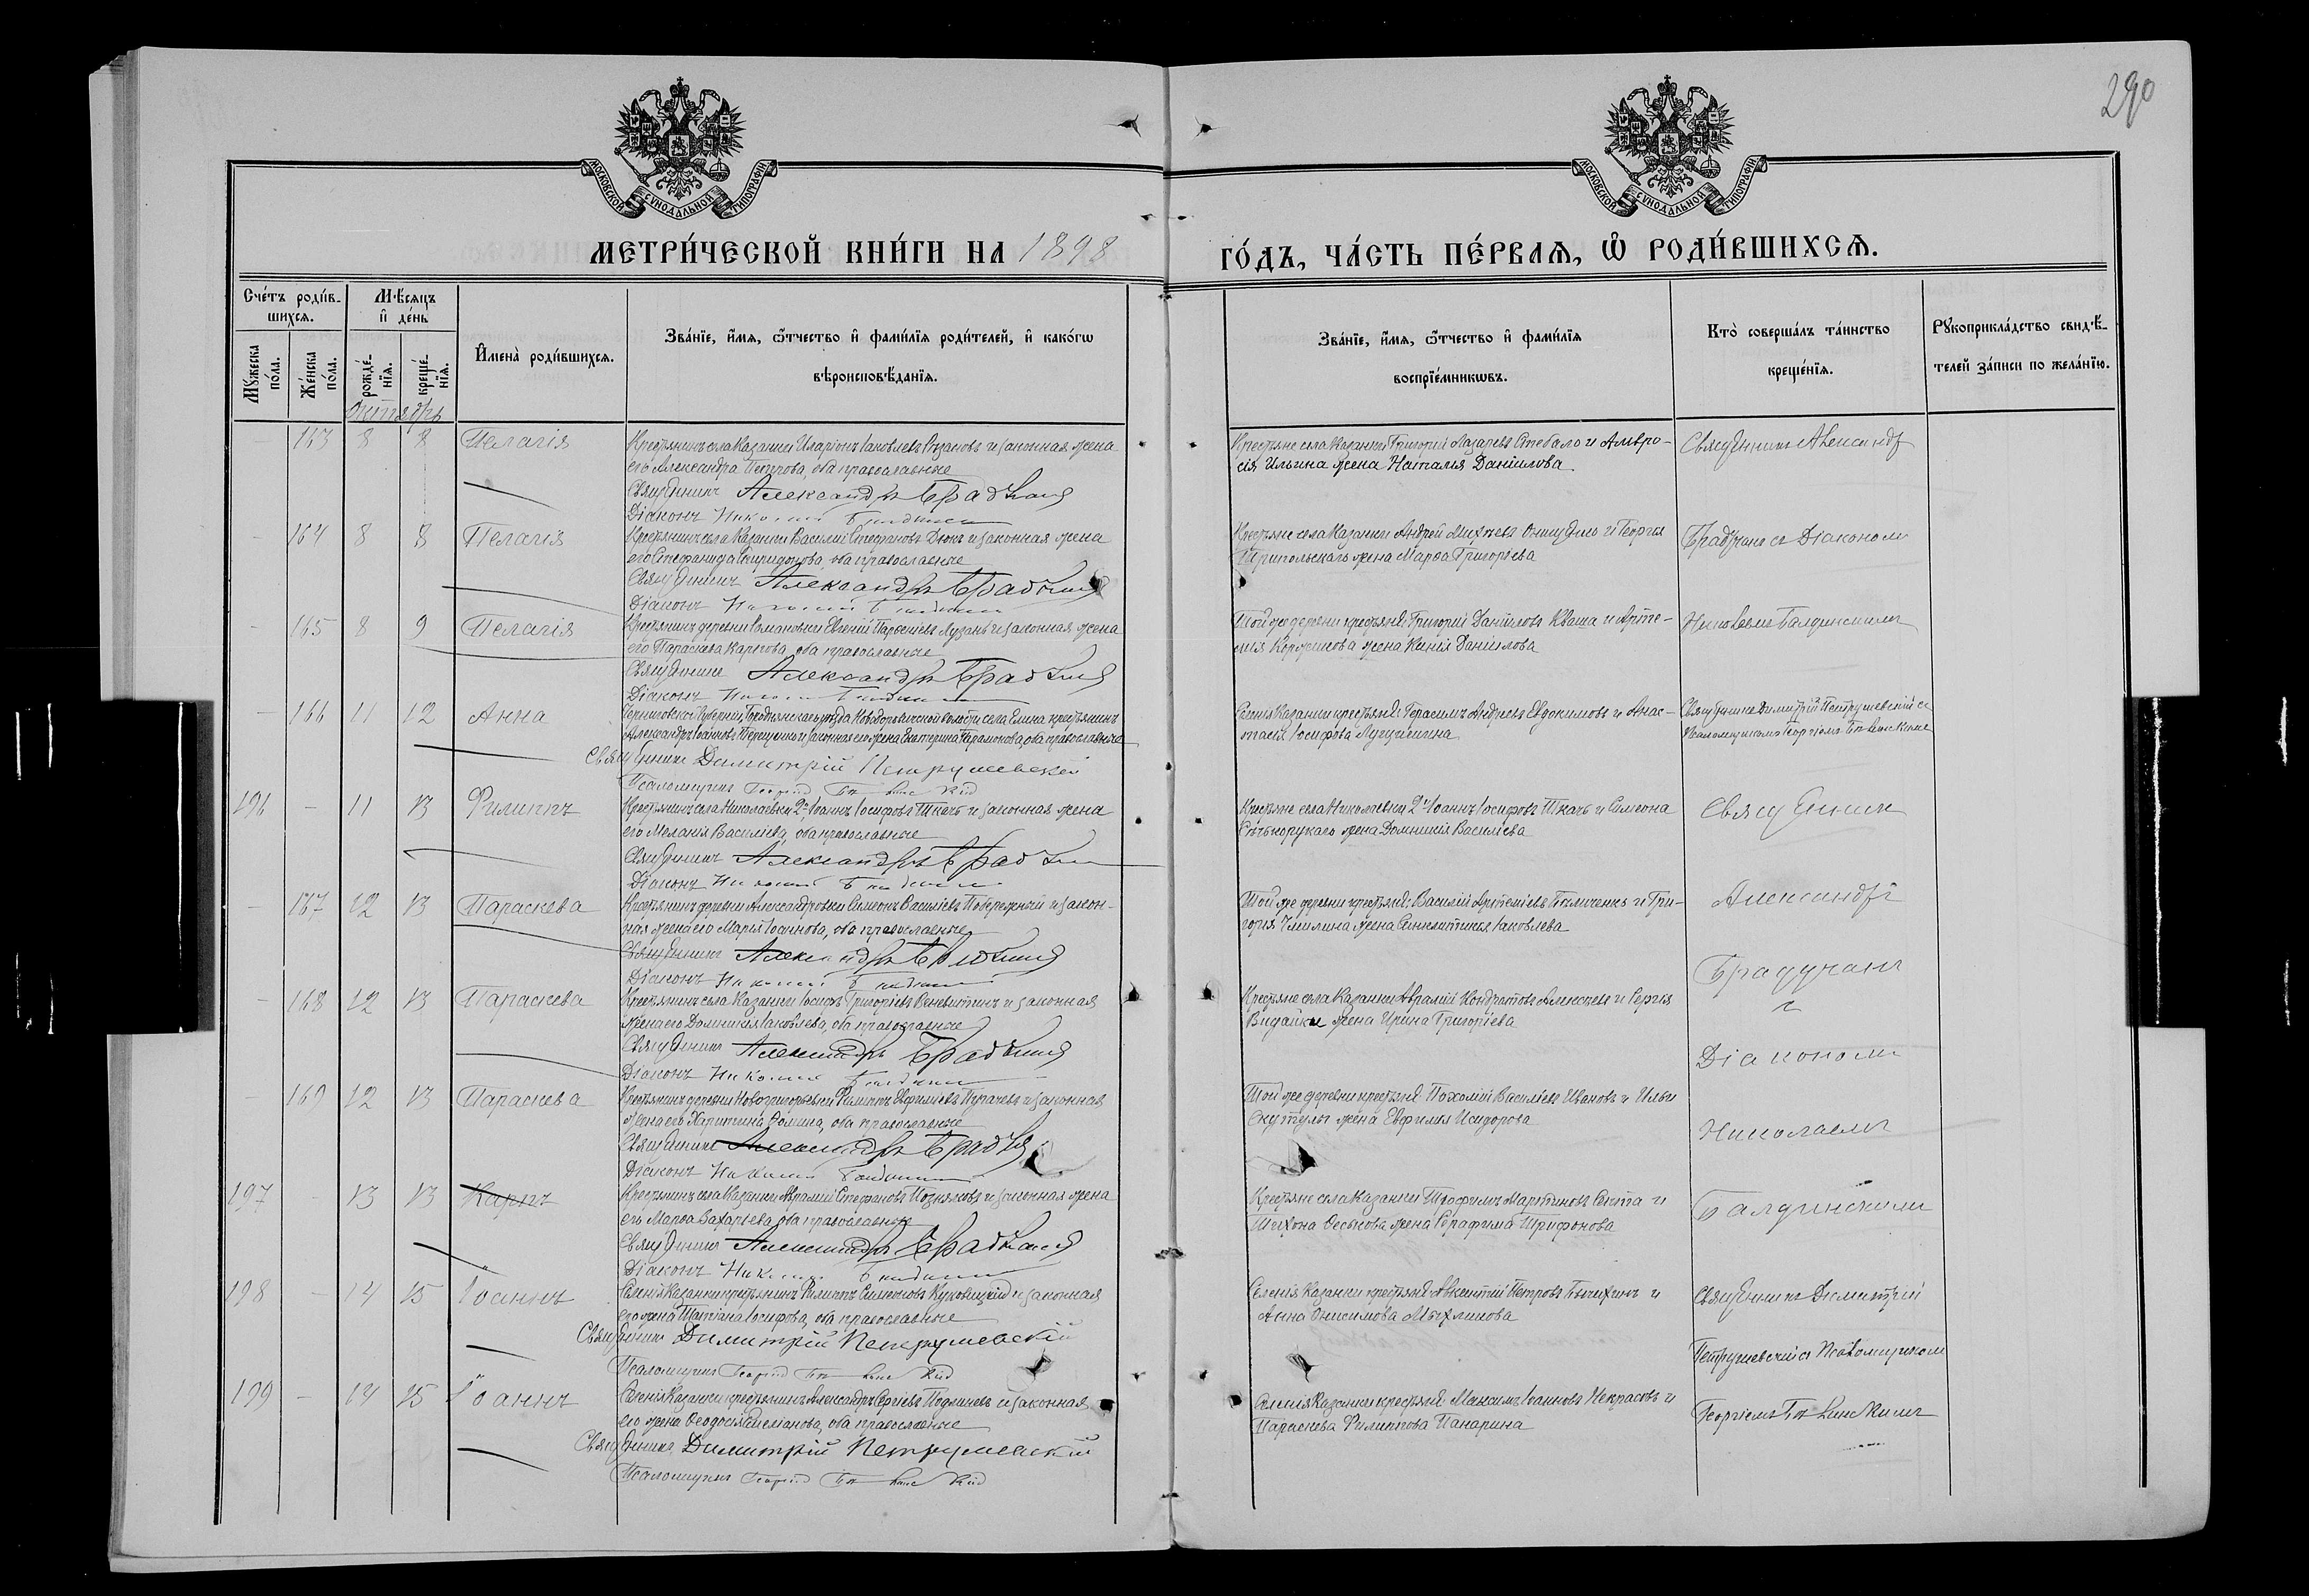 290
МОСКОВСКОЙ СѴНОДАЛЬНОЙ ТИПОГРАФІИ
МОСКОВСКОЙ СѴНОДАЛЬНОЙ ТИПОГРАФІИ
МЕТРИ́ЧЕСКОЙ КНИ́ГИ НА 1898
ГО́ДЪ, ЧА́СТЬ ПЕ́РВАѦ, Ѽ РОДИ́ВШИХСѦ.
Сче́тъ роди́в-
шихсѧ.
Мꙋ́жеска по́ла.
Же́нска по́ла.
Мѣ́сѧцъ
и҆ де́нь
рожде́-
нїѧ.
креще́-
нїѧ.
Октябрь
И҆мена̀ роди́вшихсѧ.
Зва́нїе, и҆́мѧ, ѻ҆́тчество и҆ фами́лїѧ роди́телей, и҆ како́гѡ
вѣроисповѣ́данїѧ.
Зва́нїе, и҆́мѧ, ѻ҆́тчество и҆ фами́лїѧ
воспрїе́мникѡвъ.
Кто̀ соверша́лъ та́инство
креще́нїѧ.
Рꙋкоприкла́дство свидѣ́-
телей за́писи по жела́нїю.
163 8 8 Пелагія
Крестьянинъ села Казанки Иларіонъ Іаковлевъ и законная жена
его Александра Петрова, оба православные
Священникъ Александръ Брадучанъ
Діаконъ Николай
Крестьяне села Казанки Григорій Лазаревъ Стебало и Амвро-
сія Ильина жена Наталія Даніилова
Священникъ Александръ
164 8 8 Пелагія
Крестьянинъ села Казанки Василій Стефановъ Дюкъ и законная жена
его Стефанида Спиридонова, оба православные
Священникъ Александръ Брадучанъ
Діаконъ Николай
Крестьяне села Казанки Андрей и Георгія
Трипольскаго жена Марѳа Григорьева
Брадучанъ съ Діакономъ
165 8 9 Пелагія
Крестьянинъ деревни Романовки Евгеній Лузанъ и законная жена
его Параскева Карпова, оба православные
Священникъ Александръ Брадучанъ
Діаконъ Николай
Той же деревни крестьяне: Григорій Даніиловъ Кваша и Арте-
мія жена Ксенія Даніилова
Николаемъ Балдинскимъ
166 11 12 Анна
Черниговской Губерніи, Городнянскаго уѣзда волости, села Елина крестьянинъ
Александръ Іоанновъ Терещенко и законная его жена Екатерина Парамонова, оба православные
Священникъ Димитрій Петрушевскій
Псаломщикъ Георгій
Селенія Казанки крестьяне: Герасимъ Андреевъ Евдокимовъ и Анас-
тасія Іосифова
Священникъ Димитрій Петрушевскій съ
Псаломщикомъ Георгіемъ
196 11 13 Филиппъ
Крестьянинъ села Николаевки 2й Іоаннъ Іосифовъ Ткачъ и законная жена
его Меланія Василіева, оба православные
Священникъ Александръ Брадучанъ
Діаконъ Николай
Крестьяне села Николаевки 2й Іоаннъ Іосифовъ Ткачъ и Симеона
жена Домникія Василіева
Священникъ
167 12 13 Параскева
Крестьянинъ деревни Александровки Симеонъ Василіевъ Побережный и закон-
ная жена его Марія Іоаннова, оба православные
Священникъ Александръ Брадучанъ
Діаконъ Николай
Той же деревни крестьяне: Василій Артеміевъ и Гри-
горія Чмилина жена Синклитикія Іаковлева
Александръ
168 12 13 Параскева
Крестьянинъ села Казанки Іосифъ Григоріевъ и законная
жена его Домникія Іаковлева, оба православные
Священникъ Александръ Брадучанъ
Діаконъ Николай
Крестьяне села Казанки Авраамій Кондратовъ Алексѣевъ и Сергія
жена Ирина Григоріева
Брадучанъ
съ
169 12 13 Параскева
Крестьянинъ деревни Новогригорьевки Филиппъ Евфиміевъ Пугачевъ и законная
жена его Харитина Ѳомина, оба православные
Священникъ Александръ Брадучанъ
Діаконъ Николай
Той же деревни крестьяне Пахомій Василіевъ Ивановъ и Ильи
жена Евфимія Исидорова
Діакономъ
Николаемъ
197 13 13 Карпъ
Крестьянинъ села Казанки Авраамій Стефановъ Позняковъ и законная жена
его Марѳа Захарьева, оба православные
Священникъ Александръ Брадучанъ
Діаконъ Николай
Крестьяне села Казанки Трофимъ Мартиновъ и
Тихона жена Серафима Трифонова
Балдинскимъ
198 14 15 Іоаннъ
Селенія Казанки крестьянинъ Филиппъ Симеоновъ и законная
его жена Татіана Іосифова, оба православные
Священникъ Димитрій Петрушевскій
Псаломщикъ Георгій
Селенія Казанки крестьяне Авксентій Петровъ и
Анна Онисимова
Священникъ Димитрій
Петрушевскій съ Псаломщикомъ
199 14 15 Іоаннъ
Селенія Казанки крестьянинъ Александръ Сергіевъ и законная
его жена Ѳеодосія, оба православные
Священникъ Димитрій Петрушевскій
Псаломщикъ Георгій
Селенія Казанки крестьяне Максимъ Іоанновъ Некрасовъ и
Параскева Филиппова Панарина
Георгіемъ